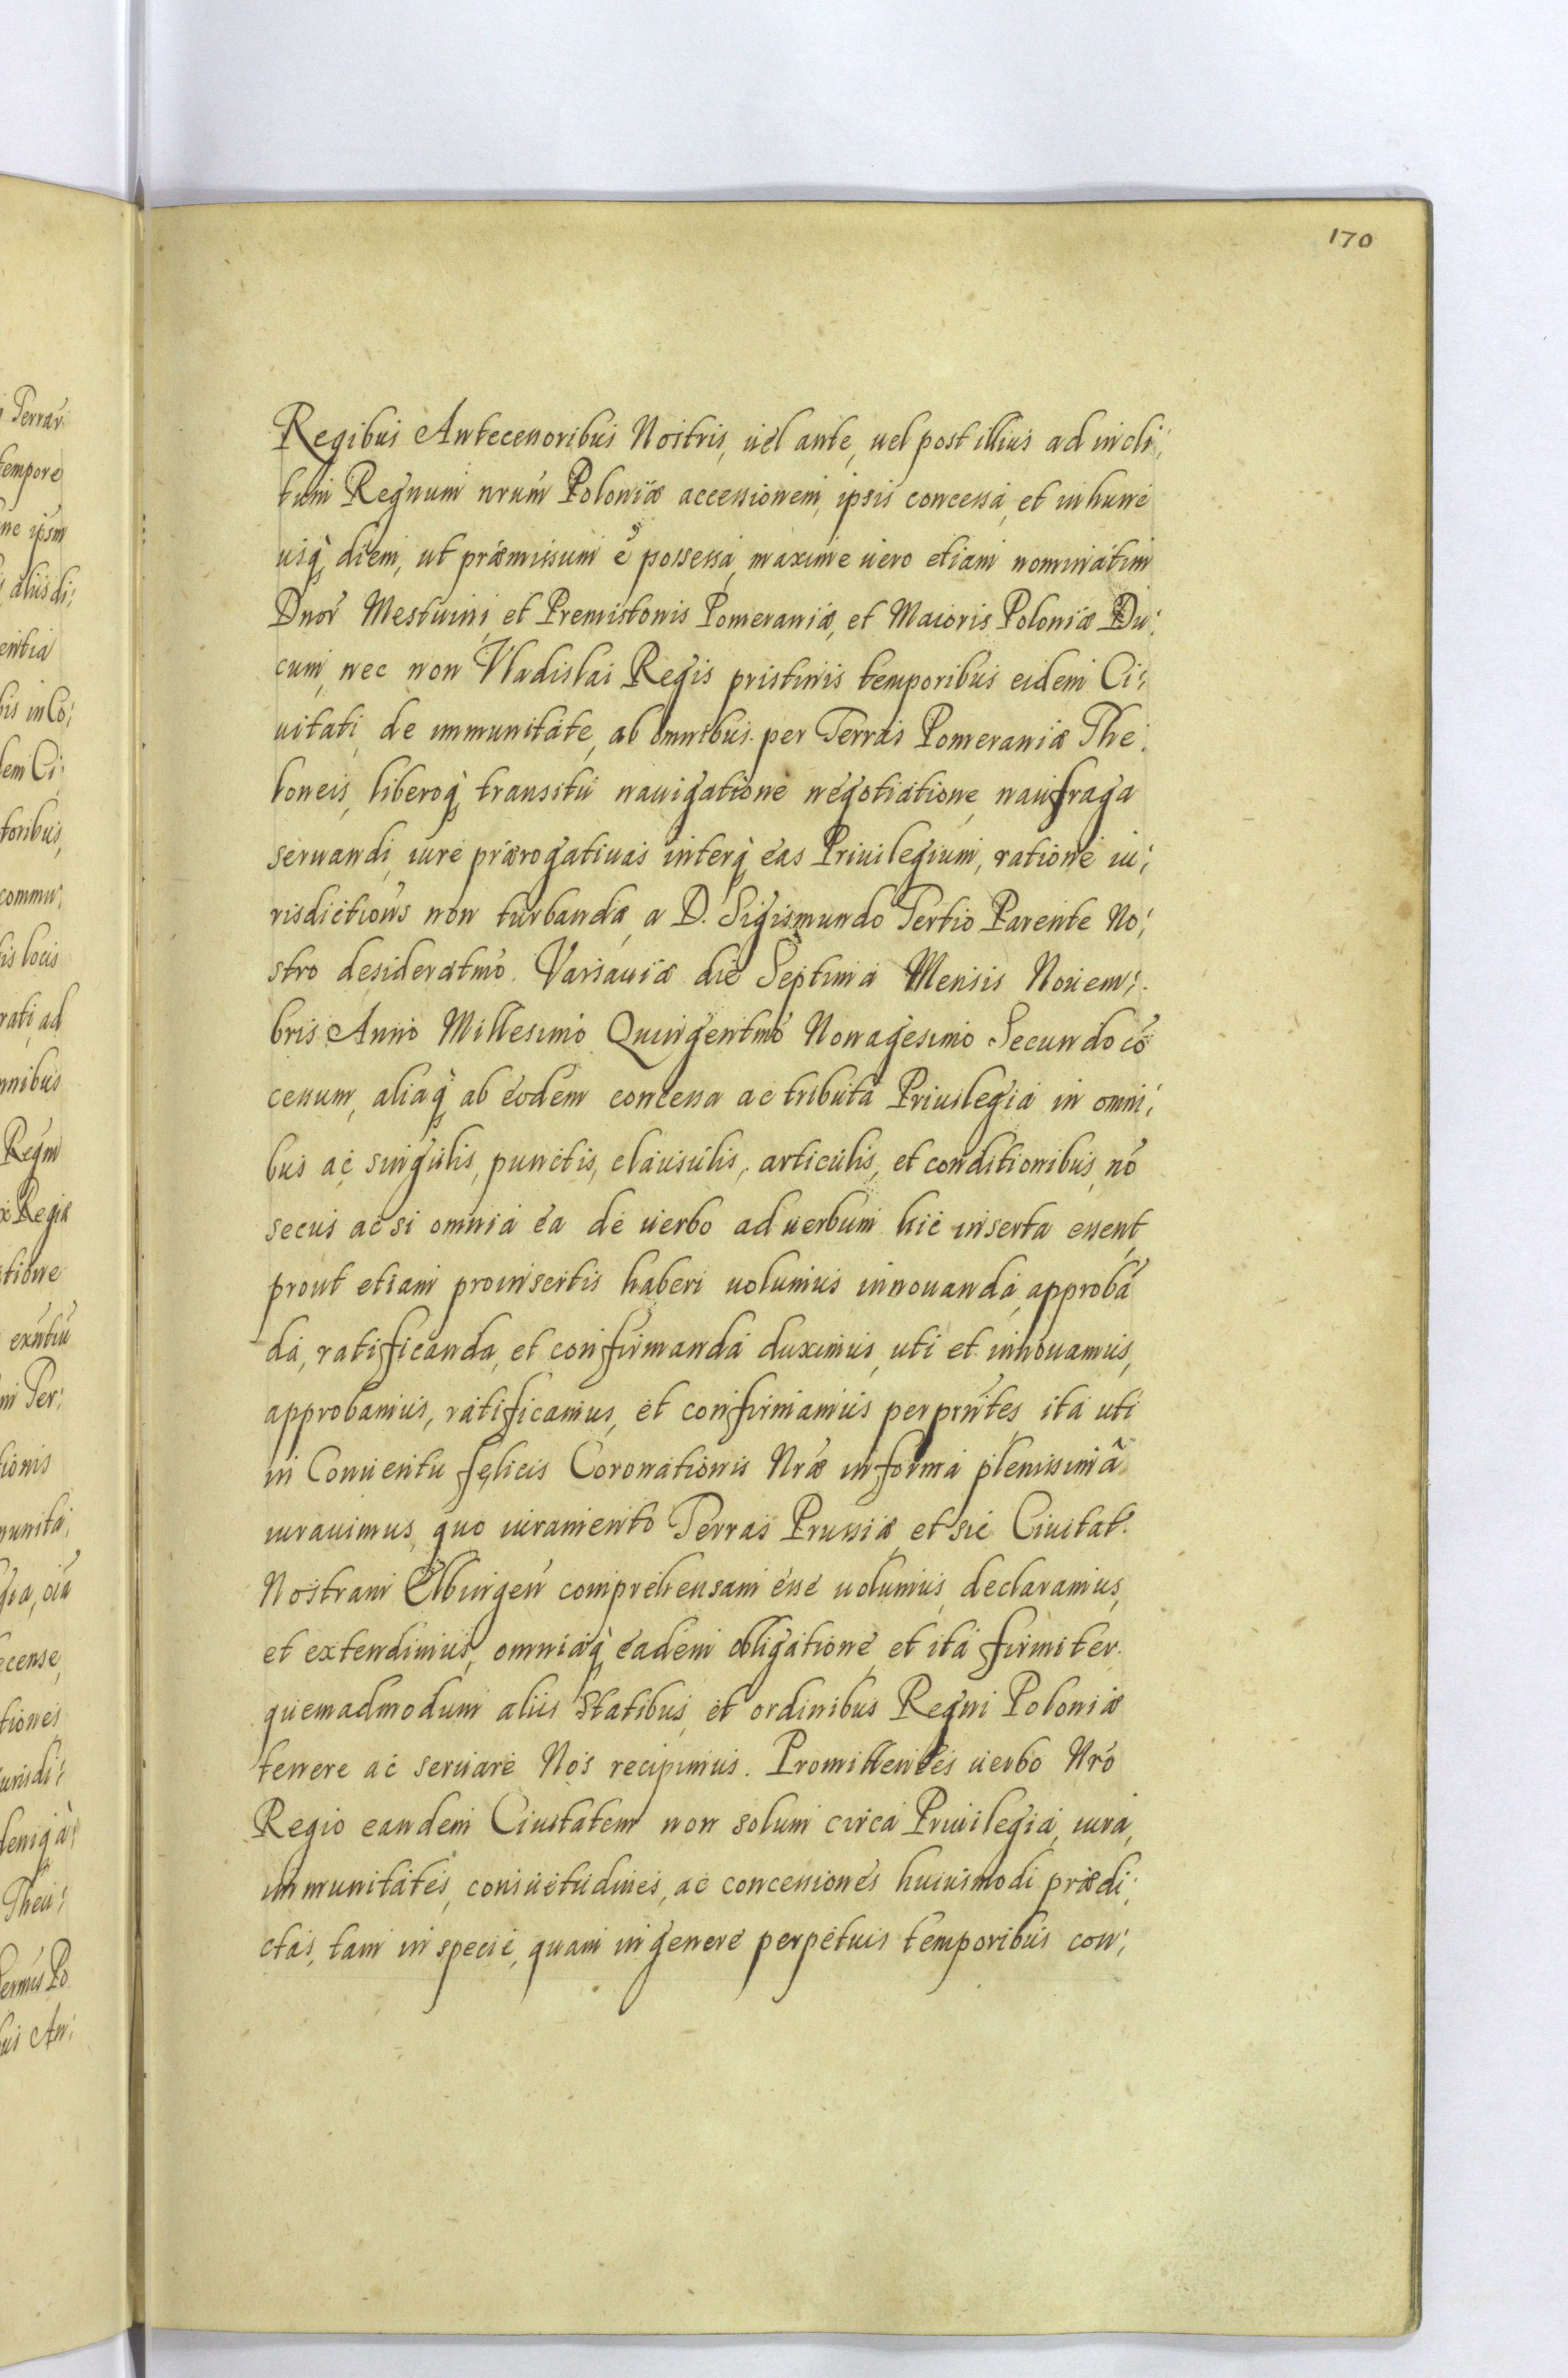 170
Regibus Antecessoribus Nostris, uel ante, uel post illius ad incli;
tum Regnum nrum Poloniæ accessionem, ipsis concessa, et in hunc
usq; diem, ut præmissum ē possessa, maxime uero etiam nominatim
Dnor Mestuini, et Premistonis Pomeraniæ, et Maioris Poloniæ Du;
cum, nec non Vladislai Regis pristinis temporibus eidem Ci;
uitati, de immunitate, ab omnibus per Terras Pomeraniæ The;
loneis, liberoq; transitu nauigatione negotiatione, naufraga
seruandi, iure prærogatiuas interq; eas Priuilegium, ratione iu;
risdictionis non turbandæ, a D. Sigismundo Tertio Parente No;
stro desideratmo. Varsauiæ die Septima Mensis Nouem;
bris Anno Millesimo Quingentmo Nonagesimo Secundo cō
cessum, aliaq; ab eodem concessa ac tributa Priuilegia in omni;
bus ac singulis, punctis, clausulis, articulis, et conditionibus, nō
secus ac si omnia ea de uerbo ad uerbum hic inserta essent,
prout etiam pro insertis haberi uolumus innouanda, approbā
da, ratificanda, et confirmanda duximus, uti et innouamus,
approbamus, ratificamus, et confirmamus per prntes, ita uti
in Conuentu felicis Coronationis Nræ in forma plenissimâ
iurauimus, quo iuramento Terras Prussiæ, et sic Ciuitat.
Nostram Elbingen comprehensam esse uolumus, declaramus,
et extendimus, omniaq; eadem obligatione et ita firmiter
quemadmodum aliis Statibus, et ordinibus Regni Poloniæ
tenere ac seruare Nos recipimus. Promittentes uerbo Nro
Regio eandem Ciuitatem non solum circa Priuilegia, iura,
immunitates, consuetudines, ac concessiones huiusmodi prædi;
ctas, tam in specie, quam in genere perpetuis temporibus con;